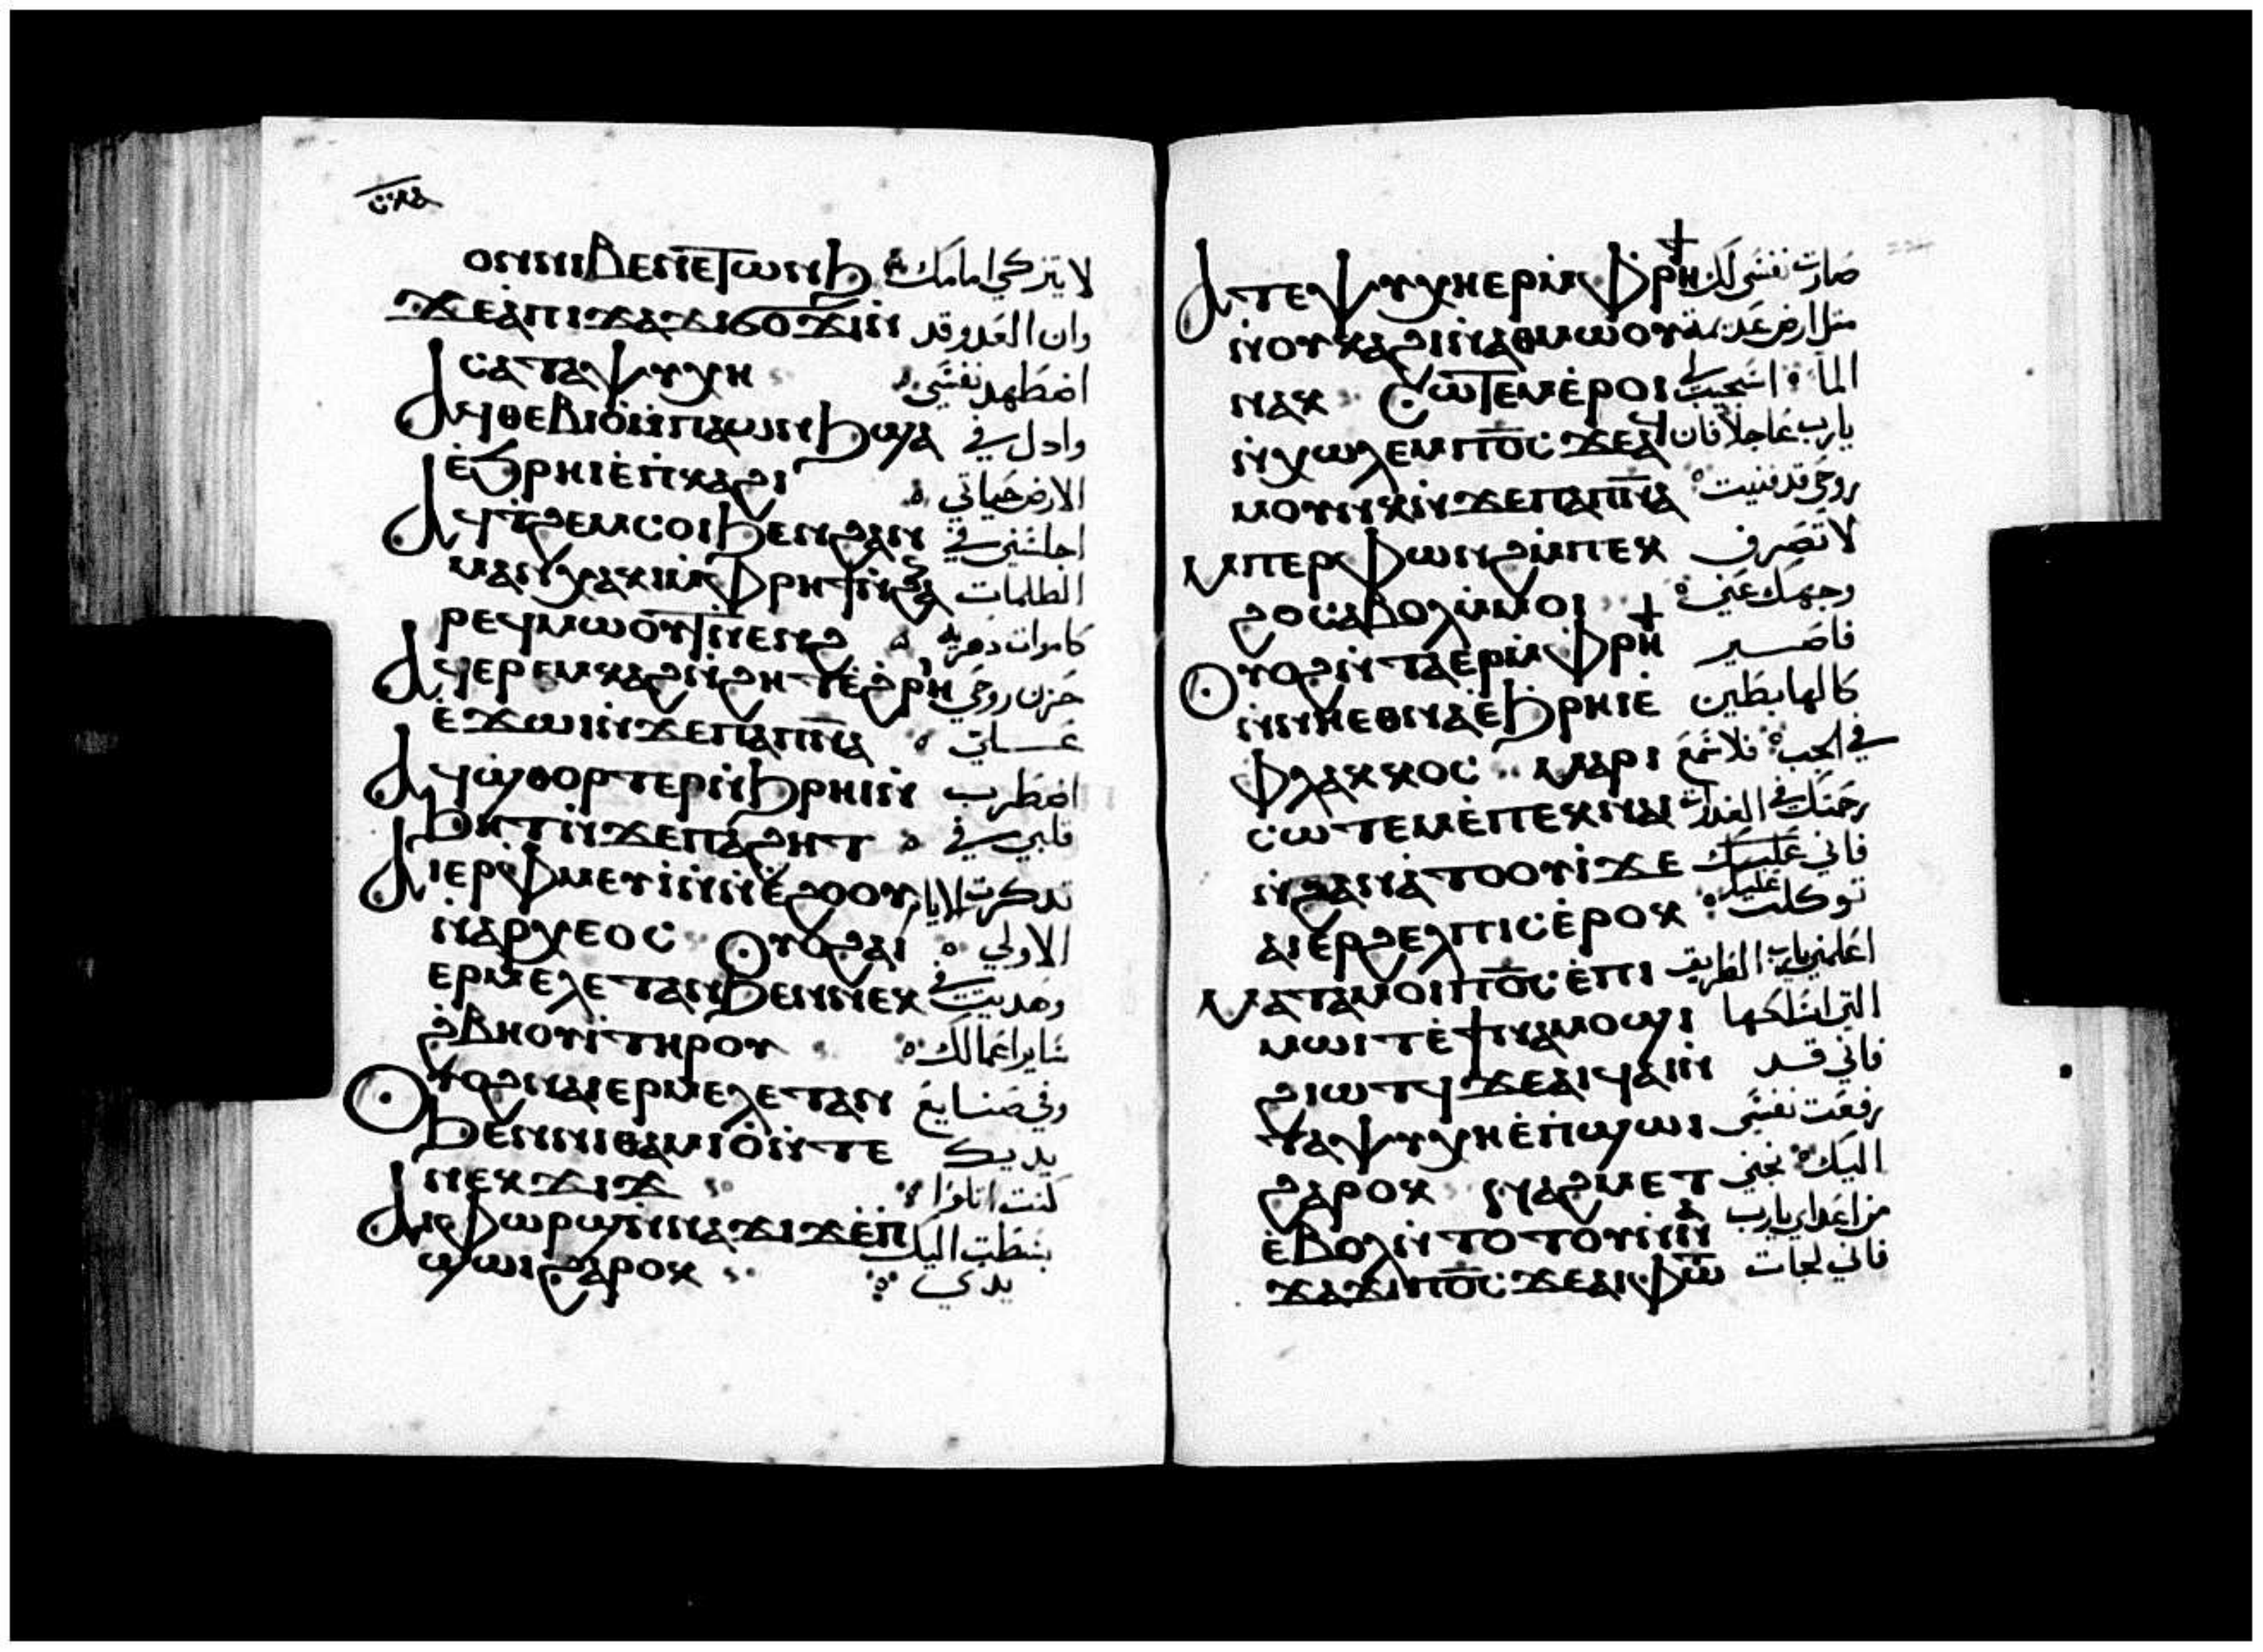 ⲟⲛⲛⲓⲃⲉⲛⲉⲧⲱⲛϧ لا يتزكي امامك
ϫⲉⲁ̀ⲡⲓϫⲁϫⲓϭⲟϫⲓⲛ̀ وان العدو قد
ⲥⲁⲧⲁⲯⲩⲭⲏ اضطهد نفسي
ⲁϥⲑⲉⲃⲓⲟ̀ⲙ̀ⲡⲁⲱⲛϧϣⲁ وادل في
ⲉ̀ϧⲣⲏⲓⲉ̀ⲡⲕⲁϩⲓ الارض حياتي
ⲁϥⲧ̀ϩⲉⲙⲥⲟⲓϧⲉⲛϩⲁⲛ اجلسني في
ⲙⲁⲛⲭⲁⲕⲓⲙ̀ⲫⲣⲏϯⲛ̀ϩⲁ الظلمات
ⲣⲉϥⲙⲱⲟⲩⲧⲛ̀ⲉⲛⲉϩ كاموات دهريه
ⲁϥⲉⲣⲉⲙⲕⲁϩⲛ̀ϩⲏⲧⲉ̀ϩⲣⲏⲓ حزن روحي
ⲉ̀ϫⲱⲓⲛ̀ϫⲉⲡⲁⲡ̅ⲛ̅ⲁ̅
ⲁϥϣⲑⲟⲣⲧⲉⲣⲛ̀ϧⲣⲏⲓⲛ̀ اضطرب
ϧⲏⲧⲛ̀ϫⲉⲡⲁϩⲏⲧ قلبي في
ⲁⲓⲉⲣⲫⲙⲉⲩⲓ̀ⲛ̀ⲛⲓⲉ̀ϩⲟⲟⲩ تدكرت الايام
ⲛ̀ⲁⲣⲭⲉⲟⲥ ⲟⲩⲟϩⲁⲓ الاولي
ⲉⲣⲙⲉⲗⲉⲧⲁⲛϧⲉⲛⲛⲉⲕ وهديت في
ϩ̀ⲃⲏⲟⲩⲓ̀ⲧⲏⲣⲟⲩ ساير اعمالك
ⲟⲩⲟϩⲛⲁⲓⲉⲣⲙⲉⲗⲉⲧⲁⲛ وفي صنايع
ϧⲉⲛⲛⲓⲑⲁⲙⲓⲟ̀ⲛ̀ⲧⲉ يديك
ⲛⲉⲕϫⲓϫ كنت اتلوا
ⲁⲓⲫⲱⲣϣⲛ̀ⲛⲁϫⲓϫⲉ̀ⲡ بسطت اليك
ϣⲱⲓϩⲁⲣⲟⲕ يدي
ⲁⲧⲉⲯⲩⲭⲏⲉⲣⲙ̀ⲫⲣⲏϯ صارت نفسي لك
ⲛ̀ⲟⲩⲕⲁϩⲓⲛ̀ⲁⲑⲙⲱⲟⲩ مثل ارض عديمة
ⲛⲁⲕ ⲥⲱⲧⲉⲙⲉ̀ⲣⲟⲓ الما استجيب لي
ⲛ̀ⲭⲱⲗⲉⲙⲡ̅ⲟ̅ⲥ̅ϫⲉⲁ̀ يارب عاجلا فان
ⲙⲟⲩⲛⲕⲛ̀ϫⲉⲡⲁⲡ̅ⲛ̅ⲁ̅ روحي قد فنيت
ⲙⲡⲉⲣⲫⲱⲛϩⲙ̀ⲡⲉⲕ لا تصرف
ϩⲟⲥⲁⲃⲟⲗⲙ̀ⲙⲟⲓ وجهك عني
ⲟⲩⲟϩⲛ̀ⲧⲁⲉⲣⲙ̀ⲫⲣⲏϯ فاصير
ⲛ̀ⲛⲏⲉⲑⲛⲁⲉ̀ϧⲣⲏⲓⲉ̀ كالهابطين
ⲫⲗⲁⲕⲕⲟⲥ ⲙⲁⲣⲓ في الجب
ⲥⲱⲧⲉⲙⲉ̀ⲡⲉⲕⲛⲁⲓ رحمتك في الغدوات
ⲛ̀ϩⲁⲛⲁ̀ⲧⲟⲟⲩⲓ̀ϫⲉ فاني عليك
ⲁⲓⲉⲣϩⲉⲗⲡⲓⲥⲉ̀ⲣⲟⲕ توكلت
ⲙⲁⲧⲁⲙⲟⲓⲡ̅ⲟ̅ⲥ̅ⲉ̀ⲡⲓ اعلمني يارب الطريق
ⲙⲱⲓⲧⲉ̀ϯⲛⲁⲙⲟϣⲓ التي اسلكها
ϩⲓⲱⲧϥϫⲉⲁⲓϥⲁⲓⲛ̀ فاني قد
ⲧⲁⲯⲩⲭⲏⲉ̀ⲡϣⲱⲓ رفعت نفسي
ϩⲁⲣⲟⲕ ⲛⲁϩⲙⲉⲧ اليك نجني
ⲉ̀ⲃⲟⲗⲛ̀ⲧⲟⲧⲟⲩⲛ̀ⲛⲁ من اعداي يارب
ϫⲁϫⲓⲡ̅ⲟ̅ⲥ̅ϫⲉⲁⲓⲫⲱ فاني لجات